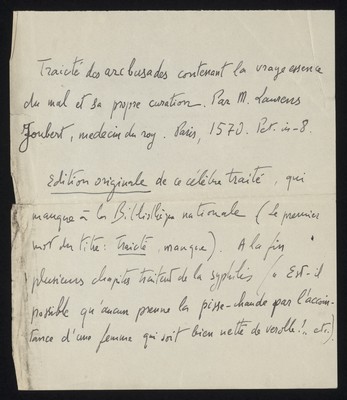 Traicté des arcbusades contenant la vraye essence
du mal et sa propre curation. Par M. Laurens
Joubert, medecin du roy. Paris, 1570. Pet. in-8.
Edition originale de ce célèbre traité, qui
manque à la Bibliothèque nationale (le premier
mot du titre: Traicté, manque). A la fin
plusieurs chapitres traitent de la syphilis (« Est-il
possible qu'aucun prenne la pisse-chaude par l'accoin-
tance d'une femme qui soit bien nette de verolle!.. etc.).